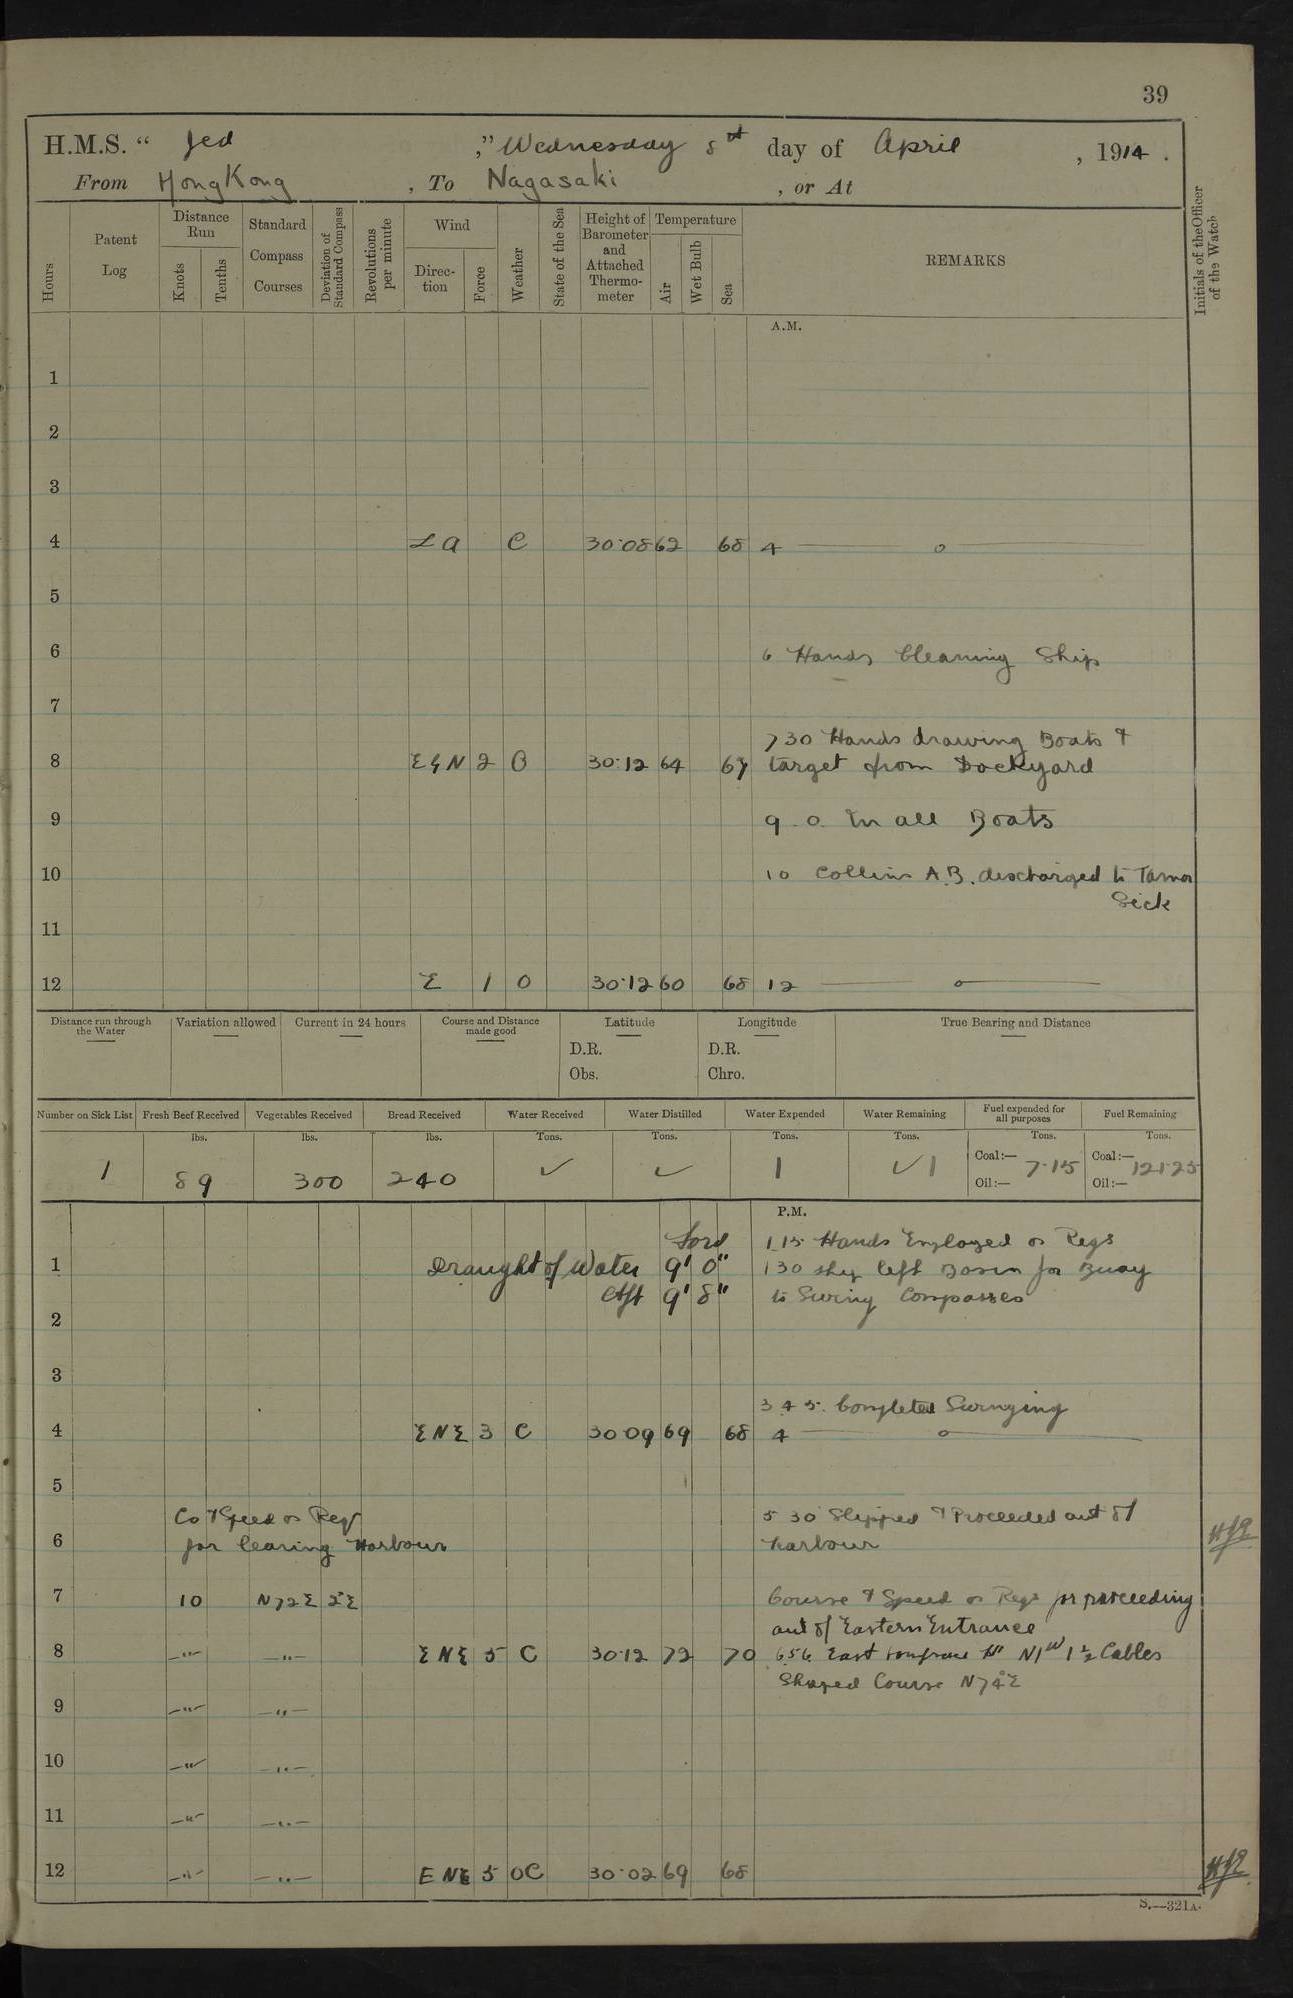 39
H.M.S. “ Jed ,” Wednesday 8th day of April , 1914 .
From HongKong , To Nagasaki , or At
Hours
Patent Log
Distance Run
Knots
Tenths
Standard Compass Courses
Deviation of Standard Compass
Revolutions per minute
Wind
Direction
Force
Weather
State of the Sea
Height of Barometer and Attached Thermometer
Temperature
Air
Wet Bulb
Sea
REMARKS
Initials of the Officer of the Watch
A.M.
1
2
3
4 C 30·08 62 68 4 — o —
5
6 6 Hands Cleaning Ship
7
730 Hands drawing Boats &
8 2 30·12 64 67 target from Dockyard
9 9.0. In all Boats
10 10 Collins A.B. discharged to Tamar
Sick
11
12 E 1 O 30·12 60 68 12 — o —
Distance run through the Water
Variation allowed
Current in 24 hours
Course and Distance made good
Latitude
D.R.
Obs.
Longitude
D.R.
Chro.
True Bearing and Distance
Number on Sick List Fresh Beef Received Vegetables Received Bread Received Water Received Water Distilled Water Expended Water Remaining Fuel expended for all purposes Fuel Remaining
lbs. lbs. lbs. Tons. Tons. Tons. Tons. Tons. Tons.
1 89 300 240 ✓ ✓ 1 Coal:— 7·15 Coal:— 121·25
Oil:— Oil:—
P.M.
Ford 1.15 Hands Employed as Reqd
1 Draught of Water 9' 0" 130 left Basin for Buoy
Aft 9' 8" to Swing Compasses
2
3
3 45. Completed Swinging
4 ENE 3 C 30·09 69 68 4 — o —
5
Co & Speed as Req 5 30 Slipped & Proceeded out of
6 for clearing Harbour harbour
7 10 N72E 2°E Course & Speed as Reqd for proceeding
out of Eastern Entrance
8 —"— —"— ENE 5 C 30·12 72 70 6.56 East N1W 1½ Cables
Shaped Course N74°E
9 —"— —"—
10 —"— —"—
11 —"— —"—
12 —"— —"— ENE 5 OC 30·02 69 68
S.—321A.